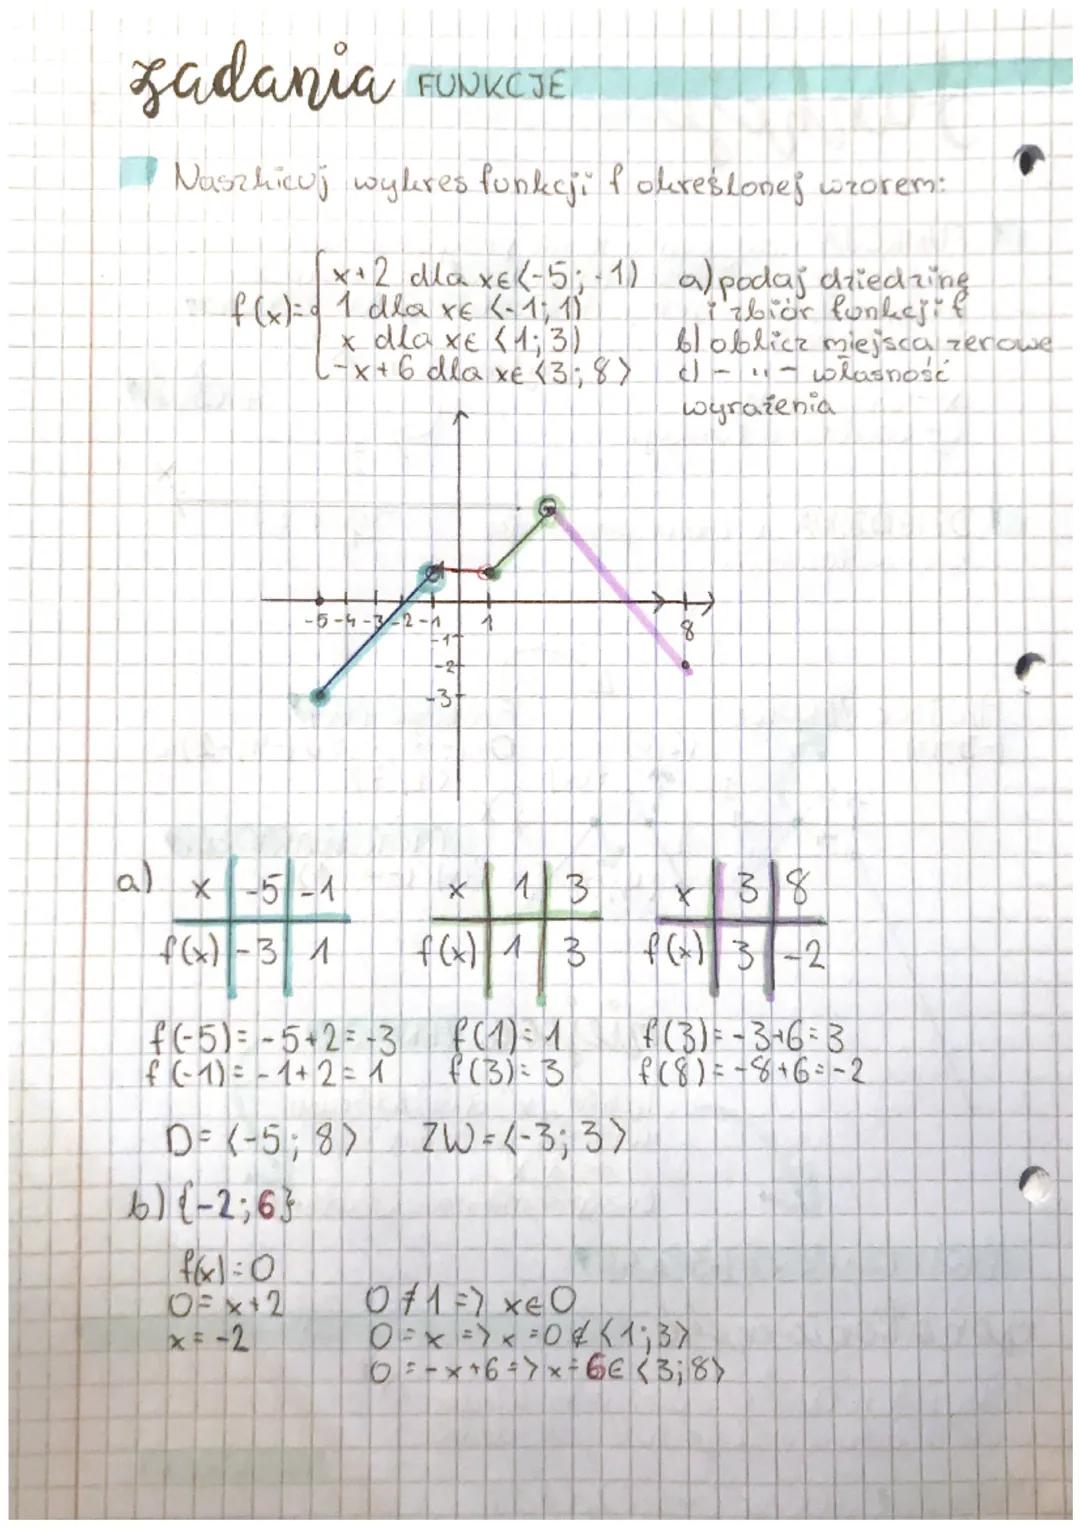 zadania FUNKCJE
Naszkicuj wykres funkcji f określonej wzorem:
x+2 dla x∈⟨-5; -1)
f(x)= { 1 dla x∈ ⟨-1; 1)
x dla x∈ ⟨1; 3)
-x+6 dla x∈ ⟨3; 8⟩
a) podaj dziedzinę
i zbiór funkcji f
b) oblicz miejsca zerowe
c) - " - własność
wyrażenia
1
-5 -4 -3 -2 -1 1 8
-1
-2
-3
a) x -5 -1
f(x) -3 1
x 1 3
f(x) 1 3
x 3 8
f(x) 3 -2
f(-5)= -5+2= -3 f(1)= 1 f(3)= -3+6= 3
f(-1)= -1+2= 1 f(3)= 3 f(8)= -8+6= -2
D= ⟨-5; 8⟩ ZW= ⟨-3; 3⟩
b) {-2; 6}
f(x)=0
0= x+2 0≠1 => x∈0
x= -2 0=x => x=0 ∉ ⟨1; 3⟩
0=-x+6 => x=6∈ ⟨3; 8⟩